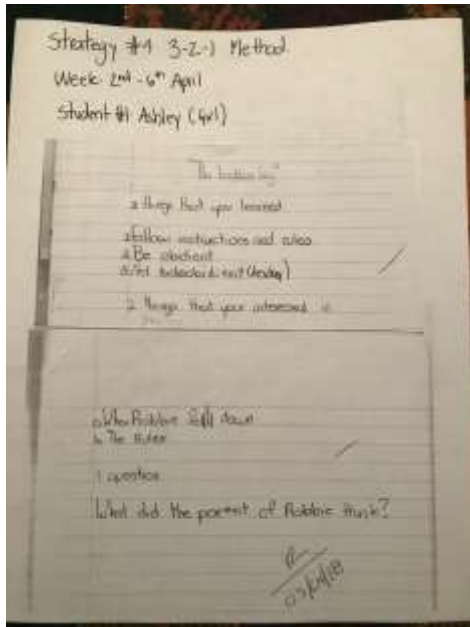 Strategy #4 3-2-1 Method
Week 2nd - 6th April
Student #1 Ashley (Girl)
3 things that you learned
Follow instructions and rules
Be obedient
2 things that your interested
a When Robbie fell down
b The Rules
1 question
What did the parent of Robbie think?
03/04/18